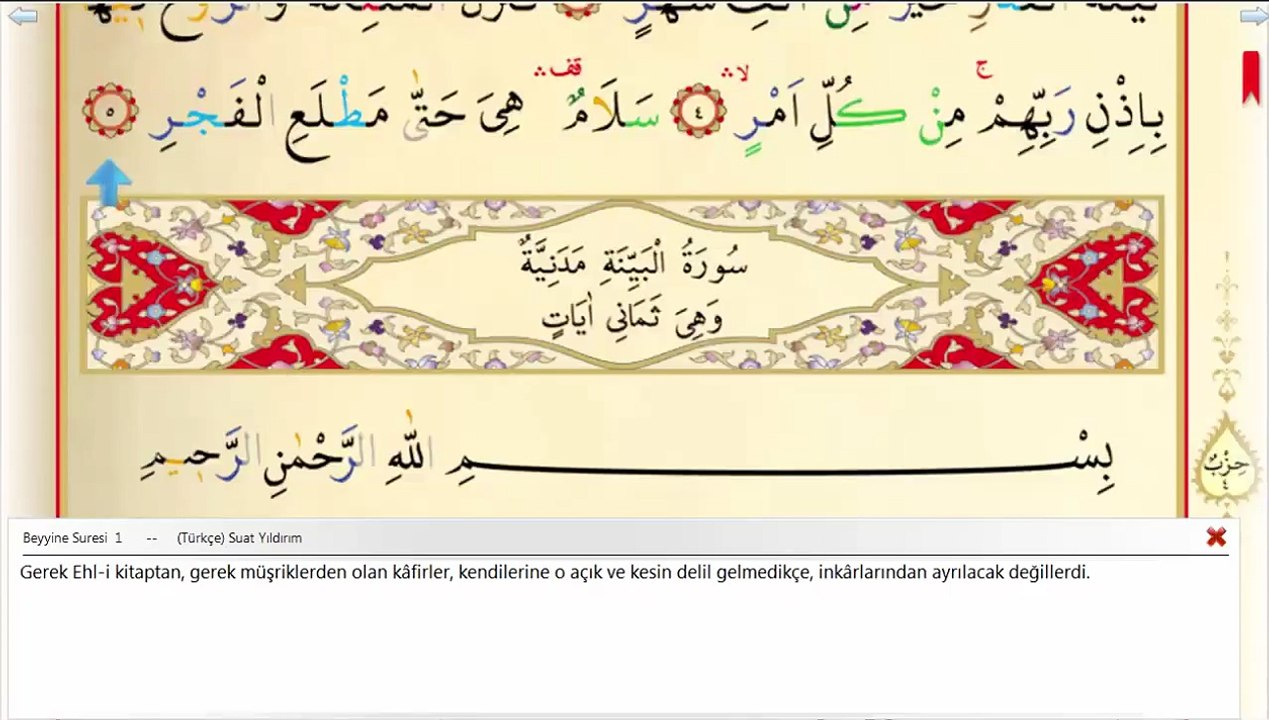 بِاِذْنِ رَبِّهِمْ ۚ مِنْ كُلِّ اَمْرٍ ۙ ﴿٤﴾ سَلَامٌ ۠ هِىَ حَتّٰى مَطْلَعِ الْفَجْرِ ﴿٥﴾
سُورَةُ الْبَيِّنَةِ مَدَنِيَّةٌ
وَهِىَ ثَمَانِى اٰيَاتٍ
حِزْبٌ
٤
بِسْمِ اللّٰهِ الرَّحْمٰنِ الرَّحِيمِ
Beyyine Suresi 1 -- (Türkçe) Suat Yıldırım
Gerek Ehl-i kitaptan, gerek müşriklerden olan kâfirler, kendilerine o açık ve kesin delil gelmedikçe, inkârlarından ayrılacak değillerdi.